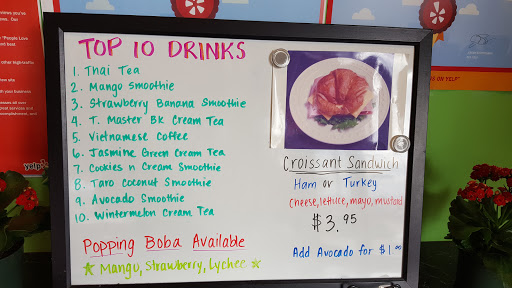 TOP 10 DRINKS
1. Thai Tea
2. Mango Smoothie
3. Strawberry Banana Smoothie
4. T. Master Bk Cream Tea
5. Vietnamese Coffee
6. Jasmine Green Cream Tea
7. Cookies n Cream Smoothie
8. Taro Coconut Smoothie
9. Avocado Smoothie
10. Wintermelon Cream Tea
Popping Boba Available
Mango, Strawberry, Lychee
Croissant Sandwich
Ham or Turkey
cheese, lettuce, mayo, mustard
$3.95
Add Avocado for $1.00
"People Love
yelp
ON YELP"